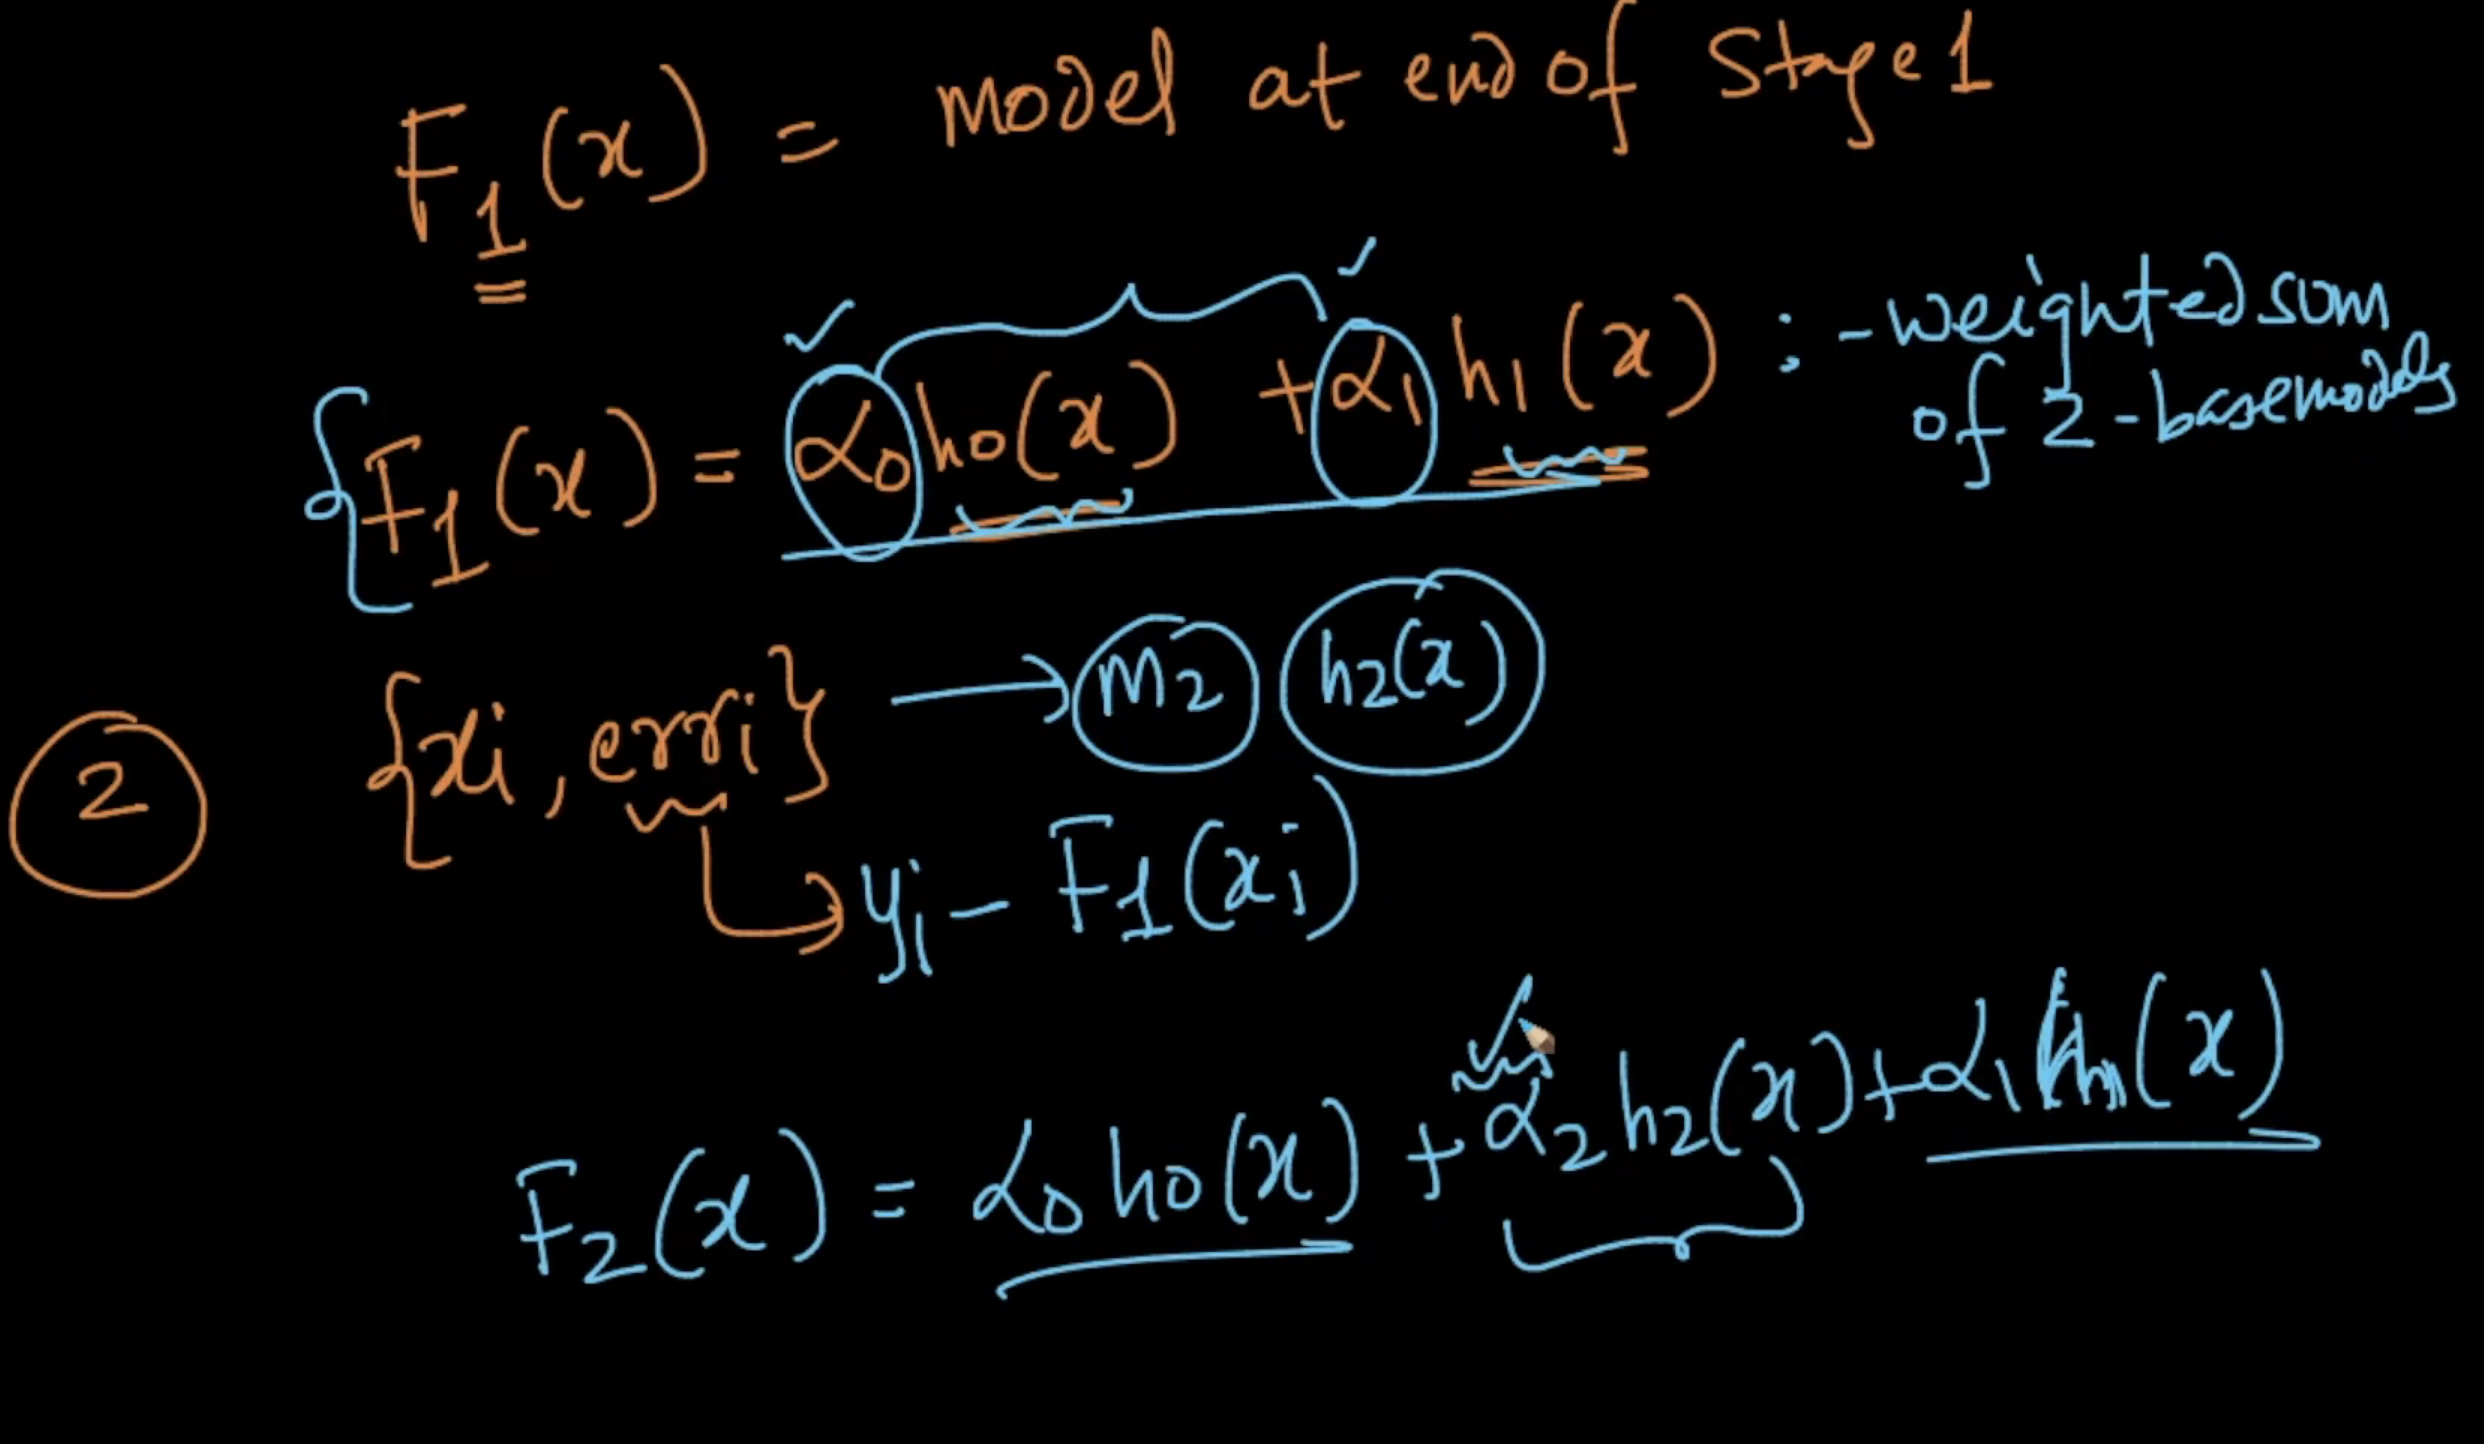 F₁(x) = model at end of Stage 1
F₁(x) = α₀h₀(x) + α₁h₁(x) : - weighted sum
of 2-basemodels
2 {xi, erri} → M₂ h₂(x)
yi - F₁(xi)
F₂(x) = α₀h₀(x) + α₂h₂(x) + α₁h₁(x)